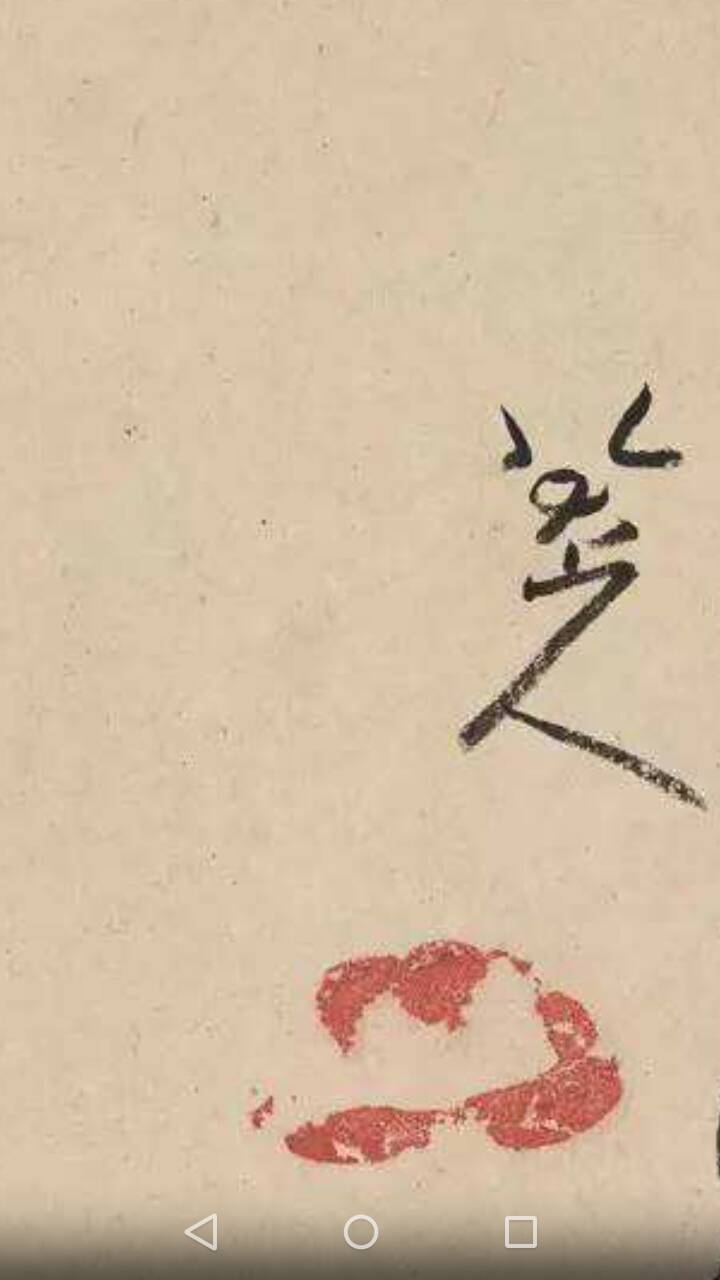 八大山人